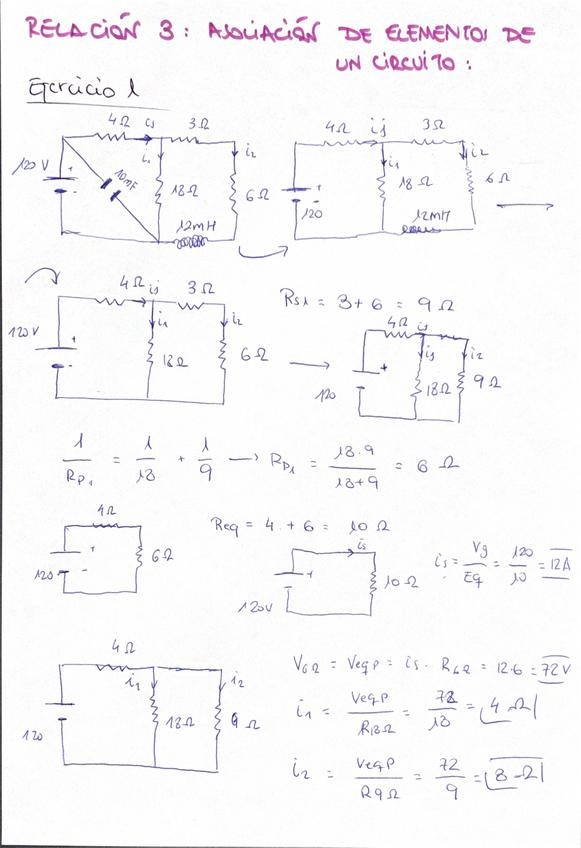 RELACIÓN 3: ASOCIACIÓN DE ELEMENTOS DE
UN CIRCUITO:
Ejercicio 1
4Ω is 3Ω
120V + - 10mF i1 18Ω i2 6Ω 12mH
4Ω is 3Ω
120 + - i1 18Ω i2 6Ω 12mH
4Ω is 3Ω
120V + - i1 18Ω i2 6Ω
Rs1 = 3+6 = 9Ω
4Ω is
120 + i1 18Ω i2 9Ω
1/Rp1 = 1/18 + 1/9 → Rp1 = 18·9/18+9 = 6 Ω
4Ω
120 + - 6Ω
Req = 4 + 6 = 10 Ω
is
120V + 10Ω
is = Vg/Eq = 120/10 = 12A
4Ω
120 i1 18Ω i2 9Ω
V6Ω = Veqp = is · R6Ω = 12·6 = 72V
i1 = Veqp/R18Ω = 72/18 = 4 Ω
i2 = Veqp/R9Ω = 72/9 = 8 Ω